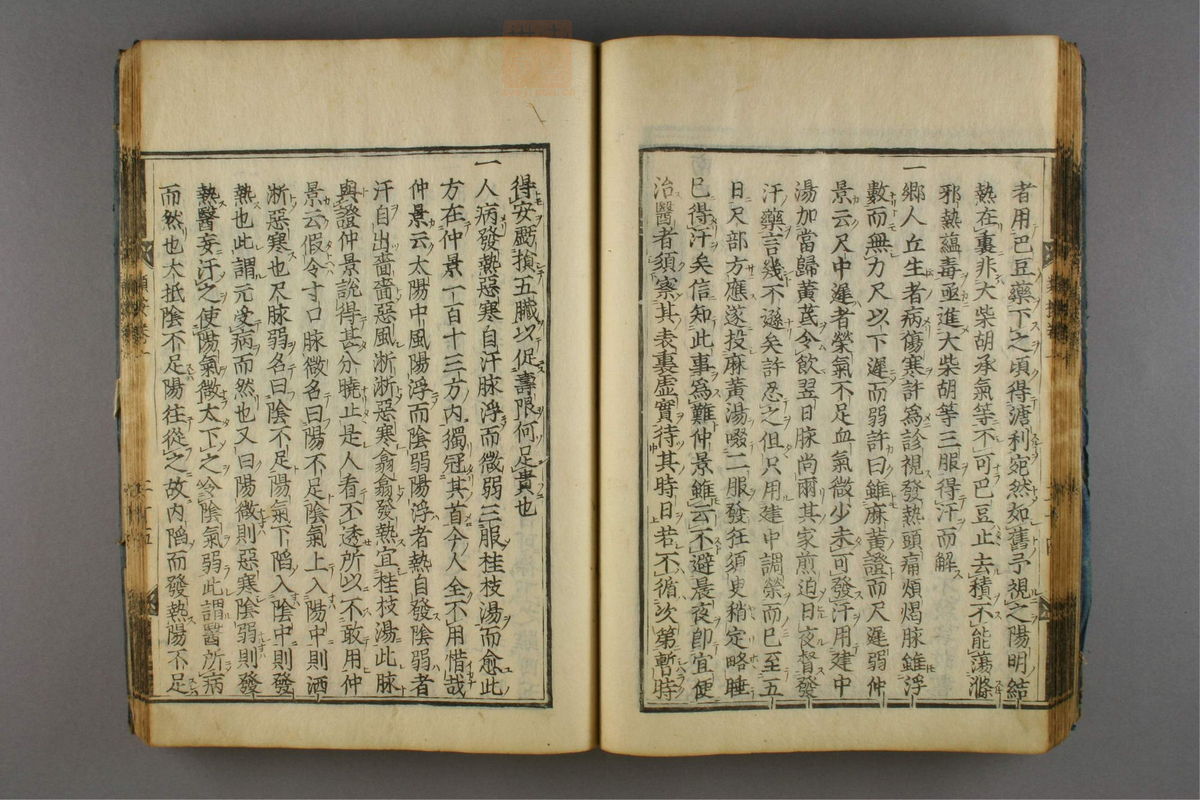 者用巴豆藥下之頃得溏利宛然如舊予視之陽明結
熱在裏非大柴胡承氣等不可巴豆止去積不能蕩滌
邪熱蘊毒亟進大柴胡等三服得汗而解
一鄉人丘生者病傷寒許為診視發熱頭痛煩渴脉雖浮
數而無力尺以下遲而弱許曰雖麻黄證而尺遲弱仲
景云尺中遲者榮氣不足血氣微少未可發汗用建中
湯加當歸黄茋令飲翌日脉尚爾其家煎迫日夜督發
汗藥言幾不遜矣許忍之但只用建中調榮而已至五
日尺部方應遂投麻黄湯啜二服發狂須臾稍定略睡
已得汗矣信知此事為難仲景雖云不避晨夜即宜便
治醫者須察其表裏虛實待其時日若不循次第暫時
得安虧損五臟以促壽限何足貴也
一人病發熱惡寒自汗脉浮而微弱三服桂枝湯而愈此
方在仲景一百十三方内獨冠其首今人全不用惜哉
仲景云太陽中風陽浮而陰弱陽浮者熱自發陰弱者
汗自出嗇嗇惡風淅淅惡寒翕翕發熱宜桂枝湯此脉
與證仲景說得甚分曉止是人看不透所以不敢用仲
景云假令寸口脉微名曰陽不足陰氣上入陽中則洒
淅惡寒也尺脉弱名曰陰不足陽氣下陷入陰中則發
熱也此謂元受病而然也又曰陽微則惡寒陰弱則發
熱醫妄汗之使陽氣微太下之令陰氣弱此謂醫所病
而然也大抵陰不足陽往從之故内陷而發熱陽不足